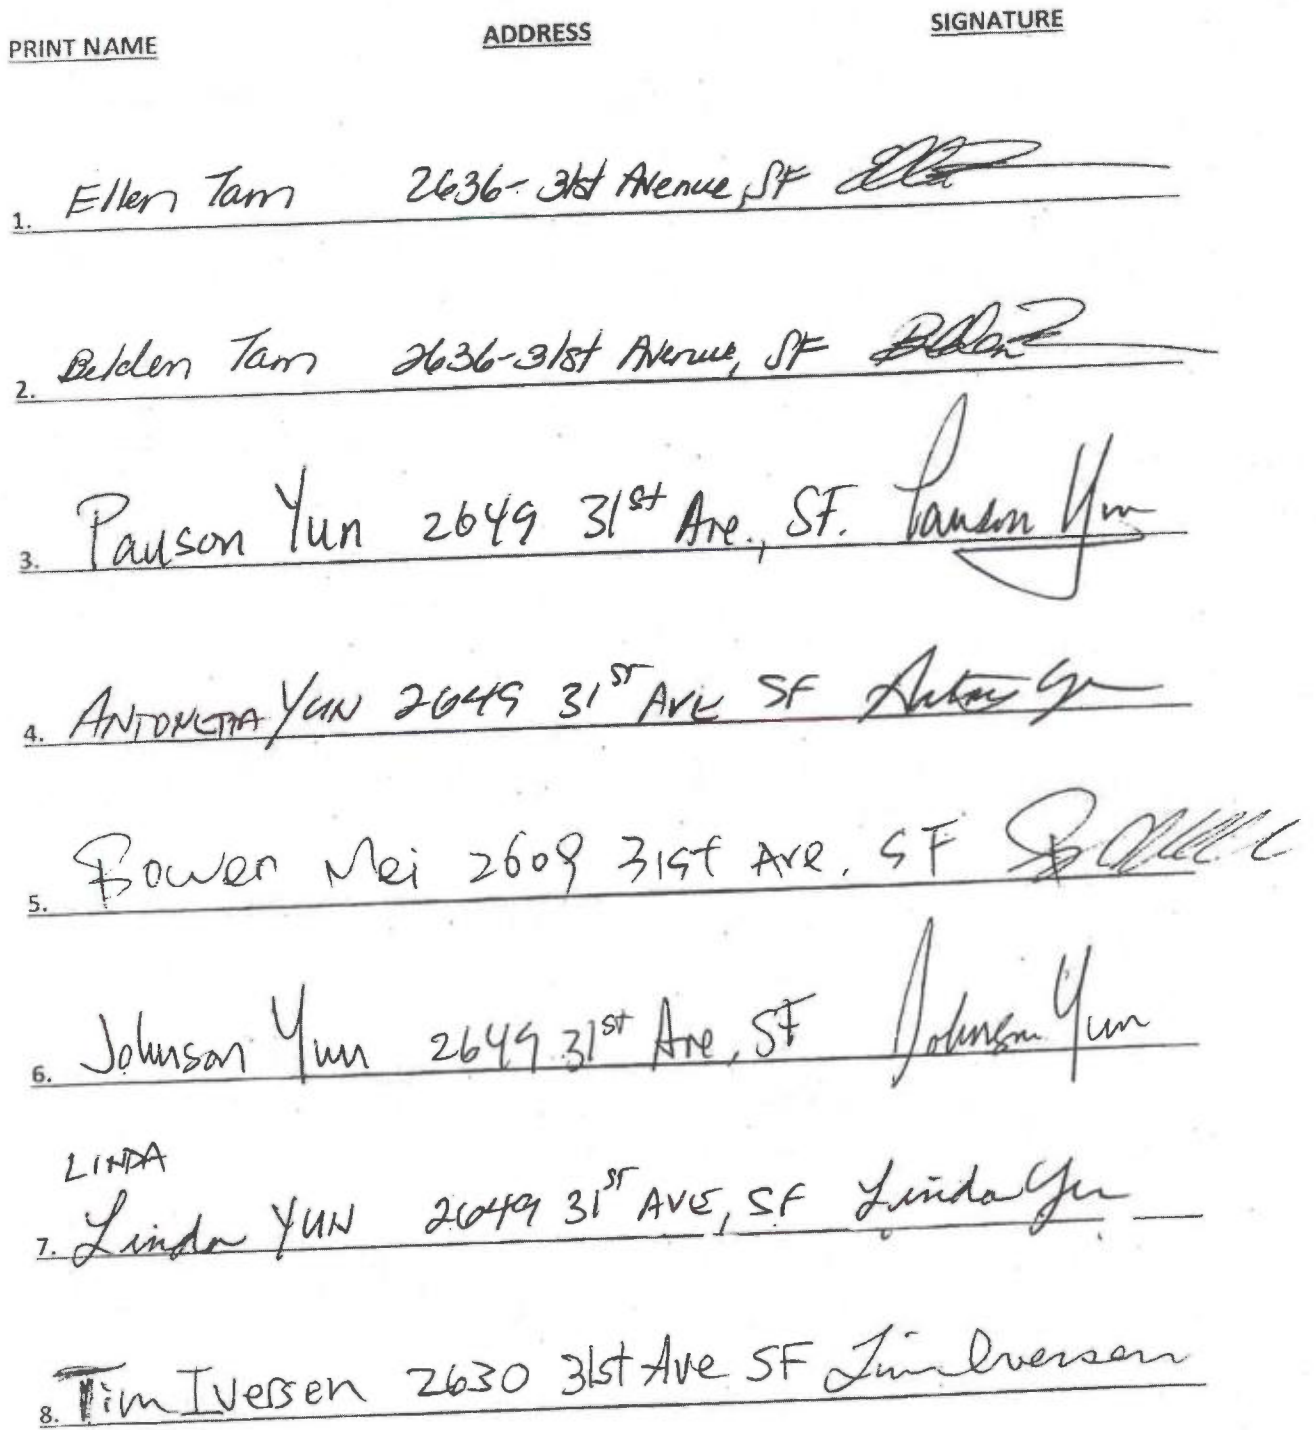 PRINT NAME ADDRESS SIGNATURE
1. Ellen Tam 2636-31st Avenue, SF
2. Belden Tam 2636-31st Avenue, SF Belden
3. Pauson Yun 2649 31st Ave., SF. Pauson Yun
4. ANTONETTA YUN 2649 31ST AVE SF
5. Bower Mei 2609 31st Ave. SF
6. Johnson Yun 2649 31st Ave, SF Johnson Yun
LINDA
7. Linda YUN 2649 31ST AVE, SF Linda Yun
8. Tim Iversen 2630 31st Ave SF Tim Iversen